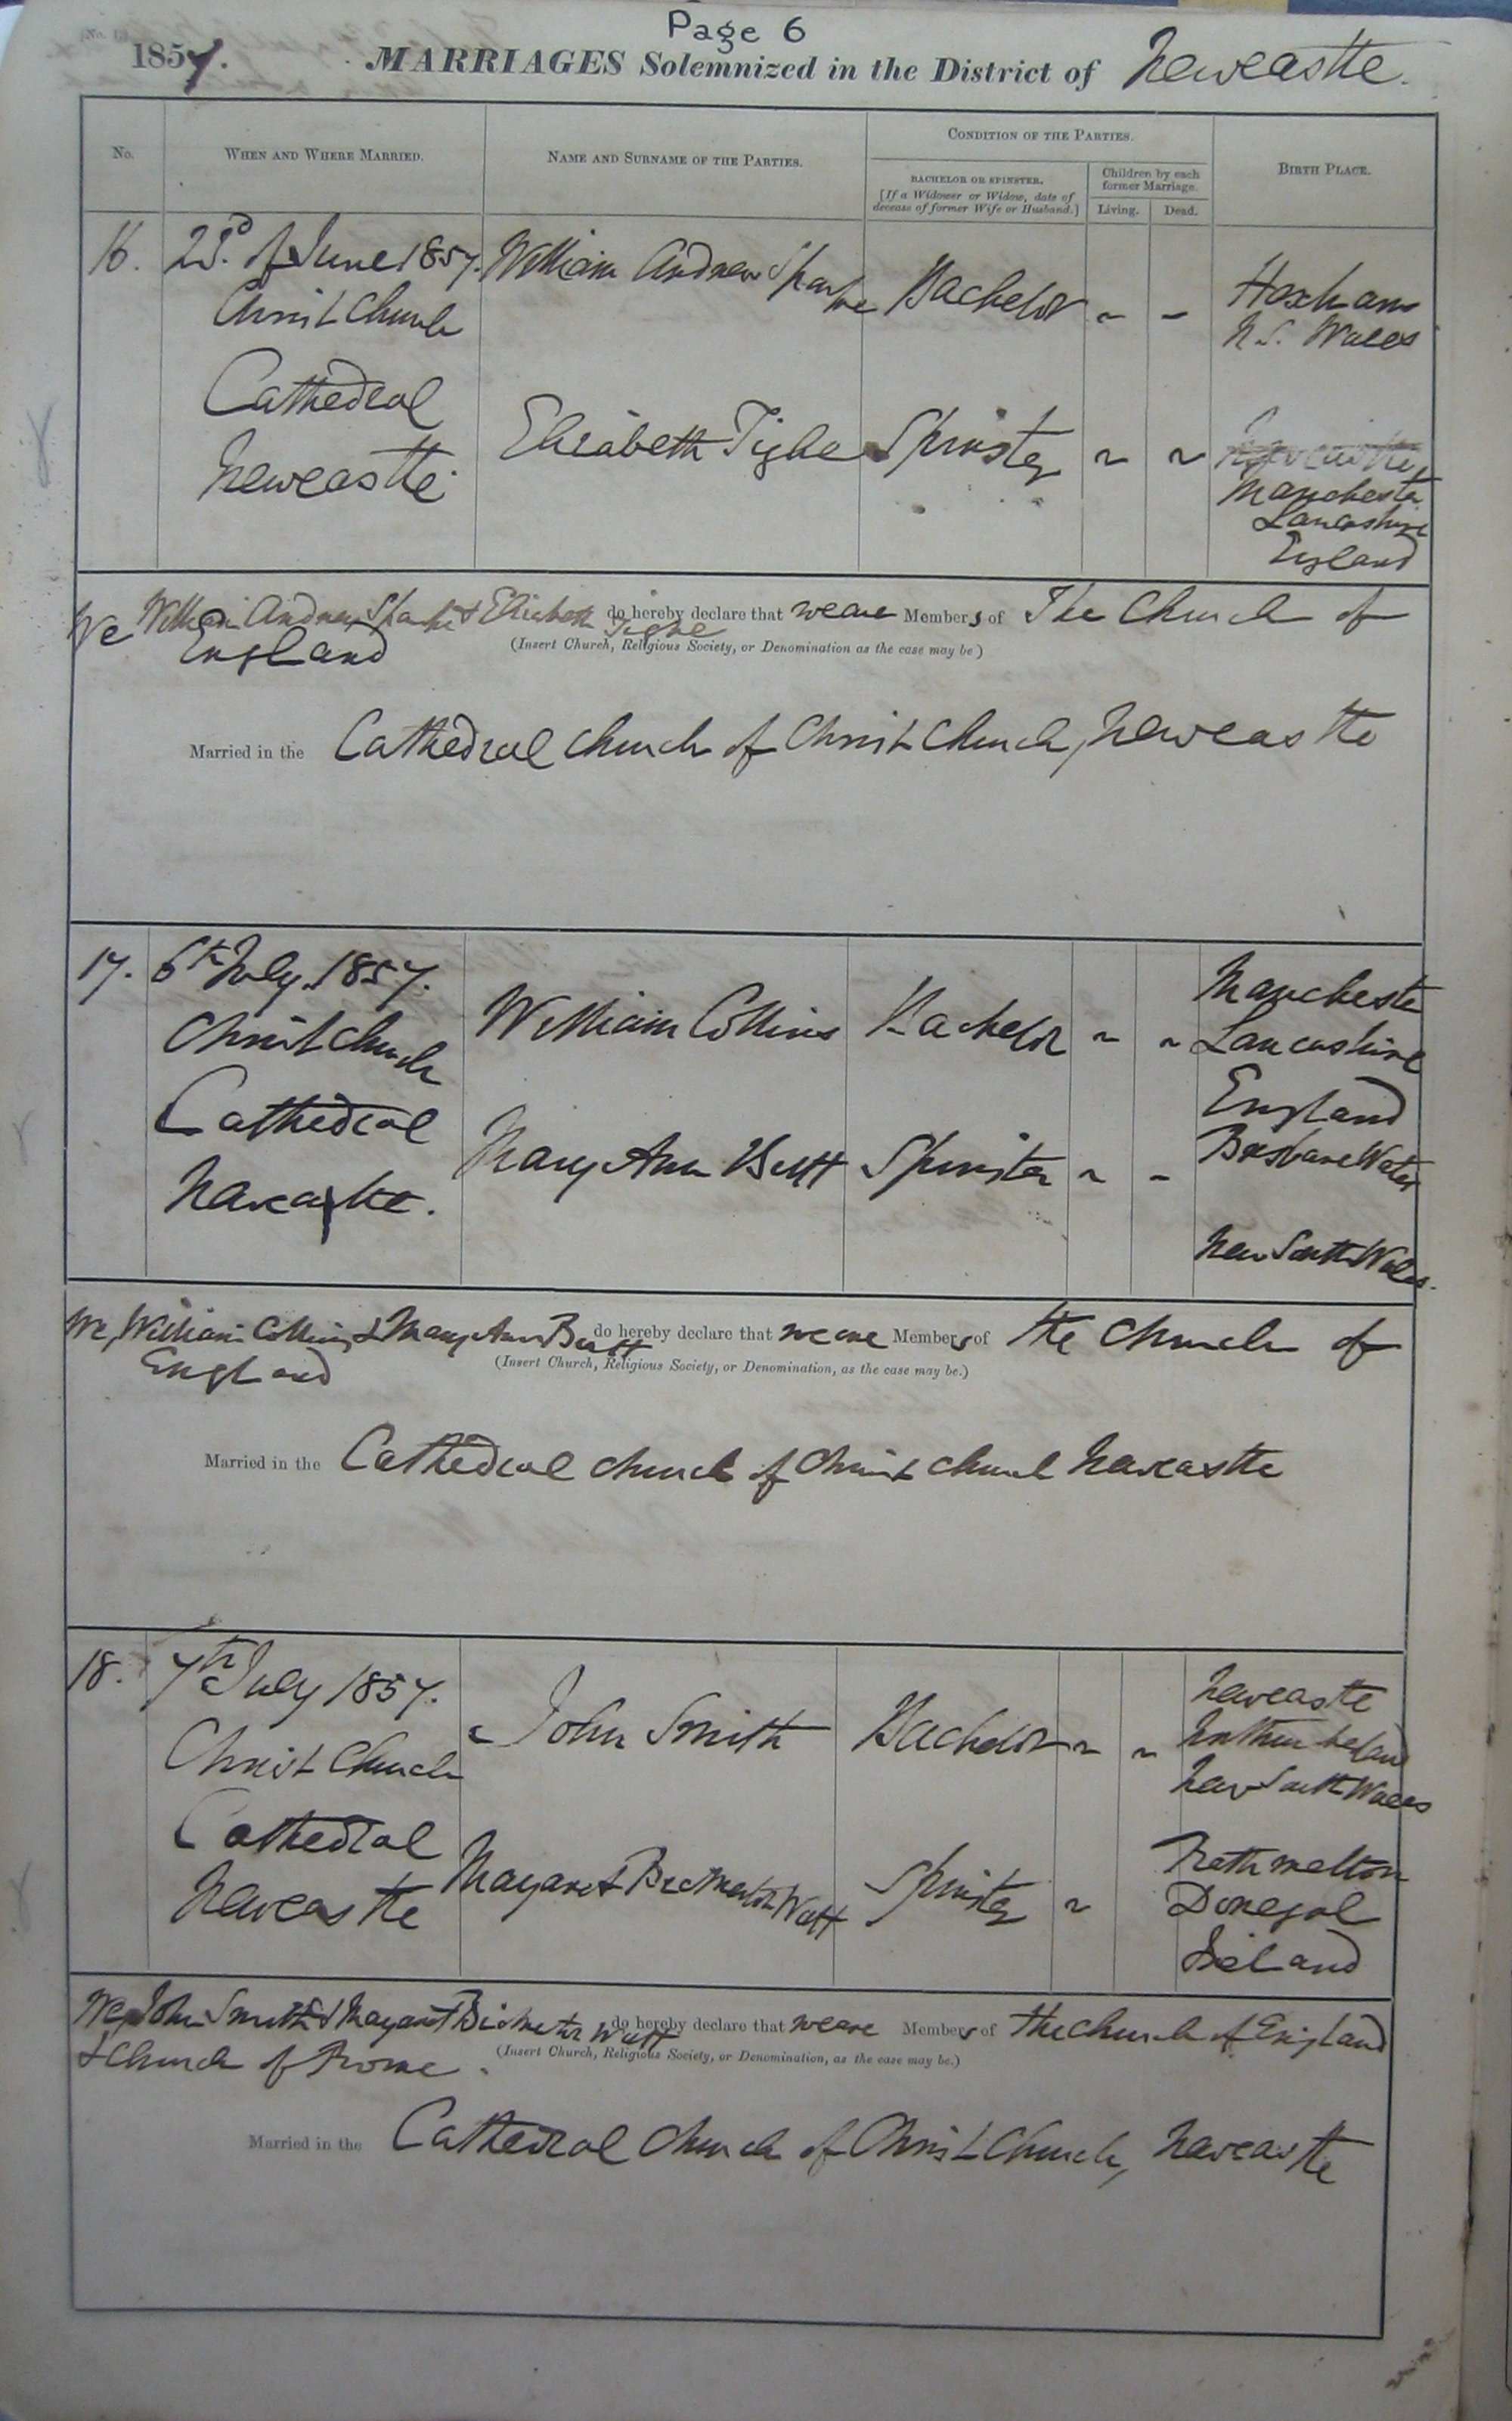 Page 6
1857. MARRIAGES Solemnized in the District of Newcastle.
No. WHEN AND WHERE MARRIED. NAME AND SURNAME OF THE PARTIES. CONDITION OF THE PARTIES. BIRTH PLACE.
BACHELOR OR SPINSTER. [If a Widower or Widow, date of decease of former Wife or Husband.] Children by each former Marriage. Living. Dead.
16. 23d. of June 1857. William Andrew Bachelor ~ - Hexham
Christ Church N.S. Wales
Cathedral
Newcastle. Elizabeth Tighe Spinster ~ ~
Manchester
Lancashire
England
We William Andrew & Elizabeth Tighe do hereby declare that we are Members of The Church of
England (Insert Church, Religious Society, or Denomination as the case may be)
Married in the Cathedral Church of Christ Church, Newcastle
17. 6th July 1857. William Collins Bachelor ~ ~ Manchester
Christ Church Lancashire
England
Cathedral Mary Ann Butt Spinster ~ - Brisbane Water
Newcastle. New South Wales.
We, William Collins & Mary Ann Butt do hereby declare that we are Members of the Church of
England (Insert Church, Religious Society, or Denomination, as the case may be.)
Married in the Cathedral Church of Christ Church Newcastle
18. 7th July 1857. John Smith Bachelor ~ ~ Newcastle
Northumberland
Christ Church New South Wales
Cathedral
Newcastle Margaret Watt Spinster ~ Rathmelton
Donegal
Ireland
We, John Smith & Margaret Watt do hereby declare that we are Members of the Church of England
& Church of Rome. (Insert Church, Religious Society, or Denomination, as the case may be.)
Married in the Cathedral Church of Christ Church, Newcastle